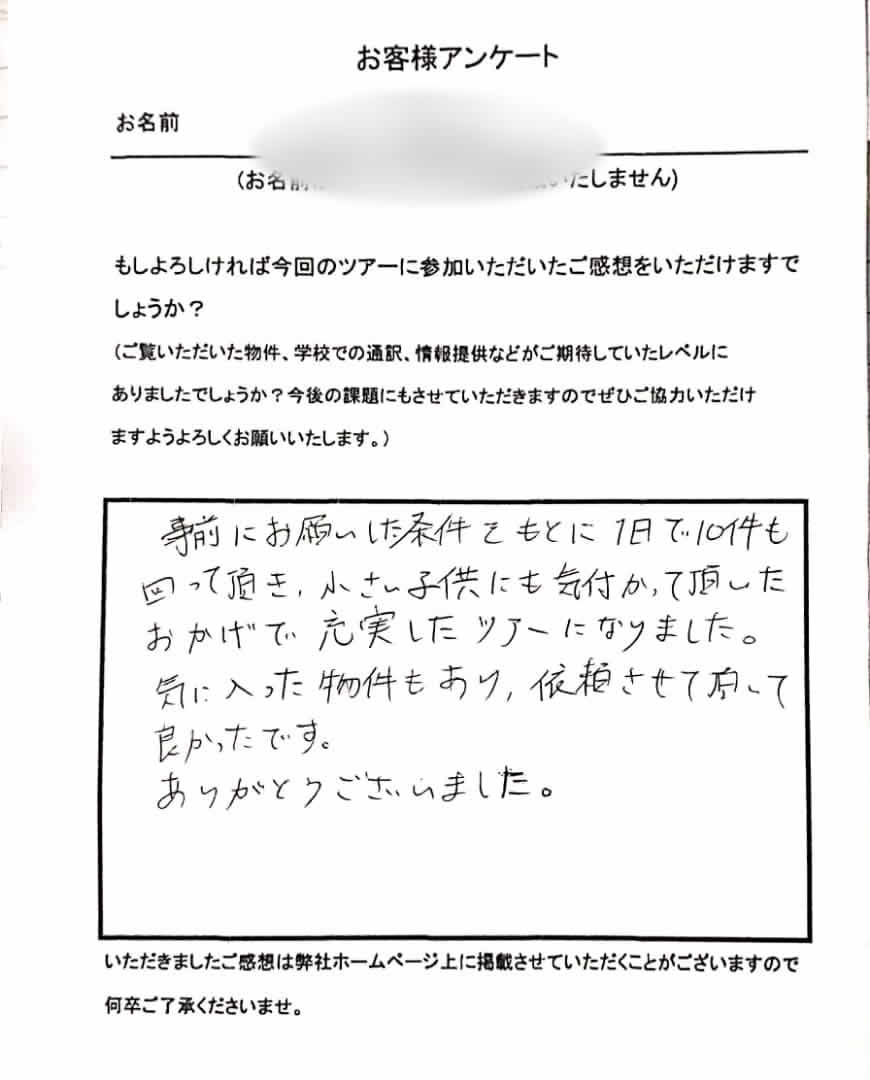 お客様アンケート
お名前
(お名前 いたしません)
もしよろしければ今回のツアーに参加いただいたご感想をいただけますで
しょうか？
（ご覧いただいた物件、学校での通訳、情報提供などがご期待していたレベルに
ありましたでしょうか？今後の課題にもさせていただきますのでぜひご協力いただけ
ますようよろしくお願いいたします。）
事前にお願いした条件をもとに1日で10件も
回って頂き、小さい子供にも気付かって頂いた
おかげで充実したツアーになりました。
気に入った物件もあり、依頼させて頂いて
良かったです。
ありがとうございました。
いただきましたご感想は弊社ホームページ上に掲載させていただくことがございますので
何卒ご了承くださいませ。